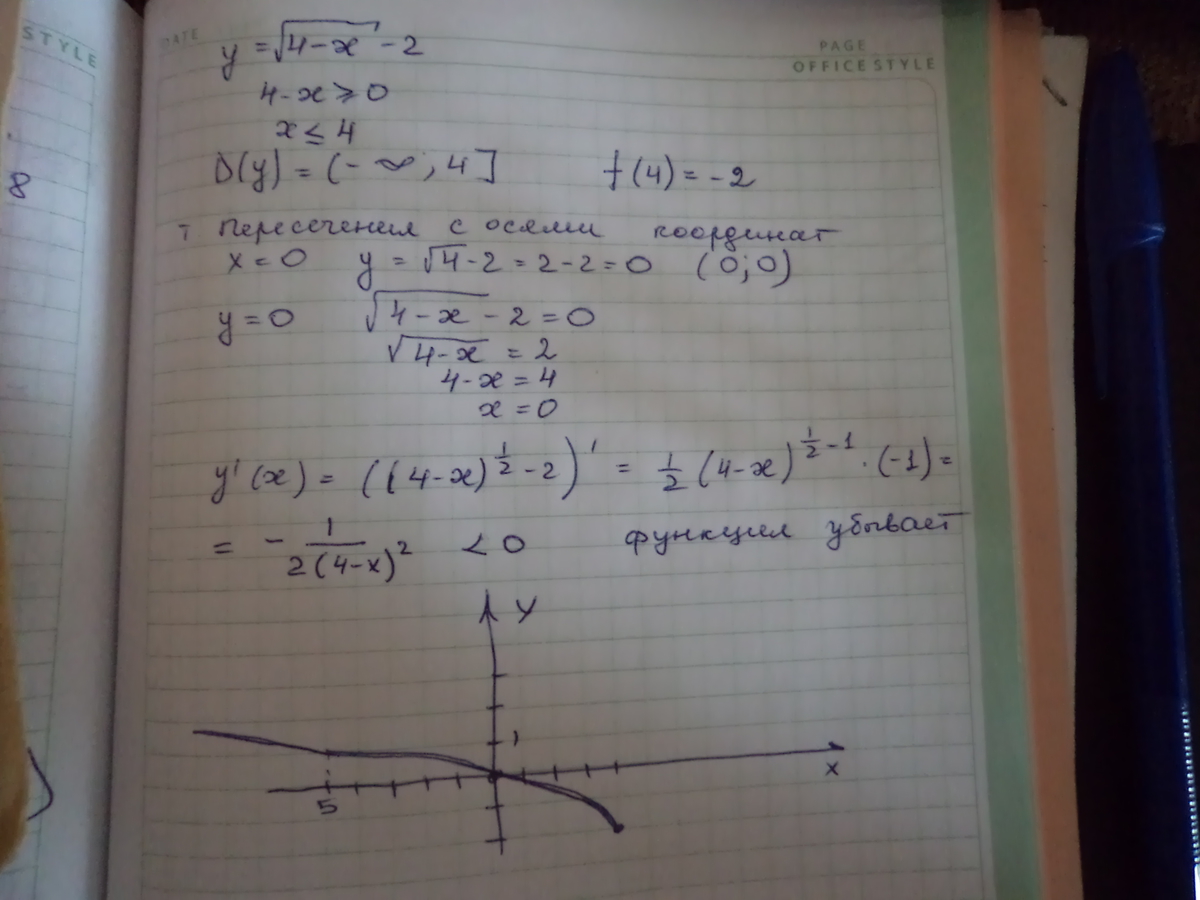 STYLE
8
DATE
PAGE
OFFICE STYLE
y = √(4-x) - 2
4-x ≥ 0
x ≤ 4
D(y) = (-∞; 4] f(4) = -2
т пересечения с осями координат
x = 0 y = √4 - 2 = 2 - 2 = 0 (0; 0)
y = 0 √(4-x) - 2 = 0
√(4-x) = 2
4-x = 4
x = 0
y'(x) = ((4-x)^(1/2) - 2)' = 1/2 (4-x)^(1/2 - 1) · (-1) =
= - 1/(2(4-x)^2) < 0 функция убывает
y
1
x
5